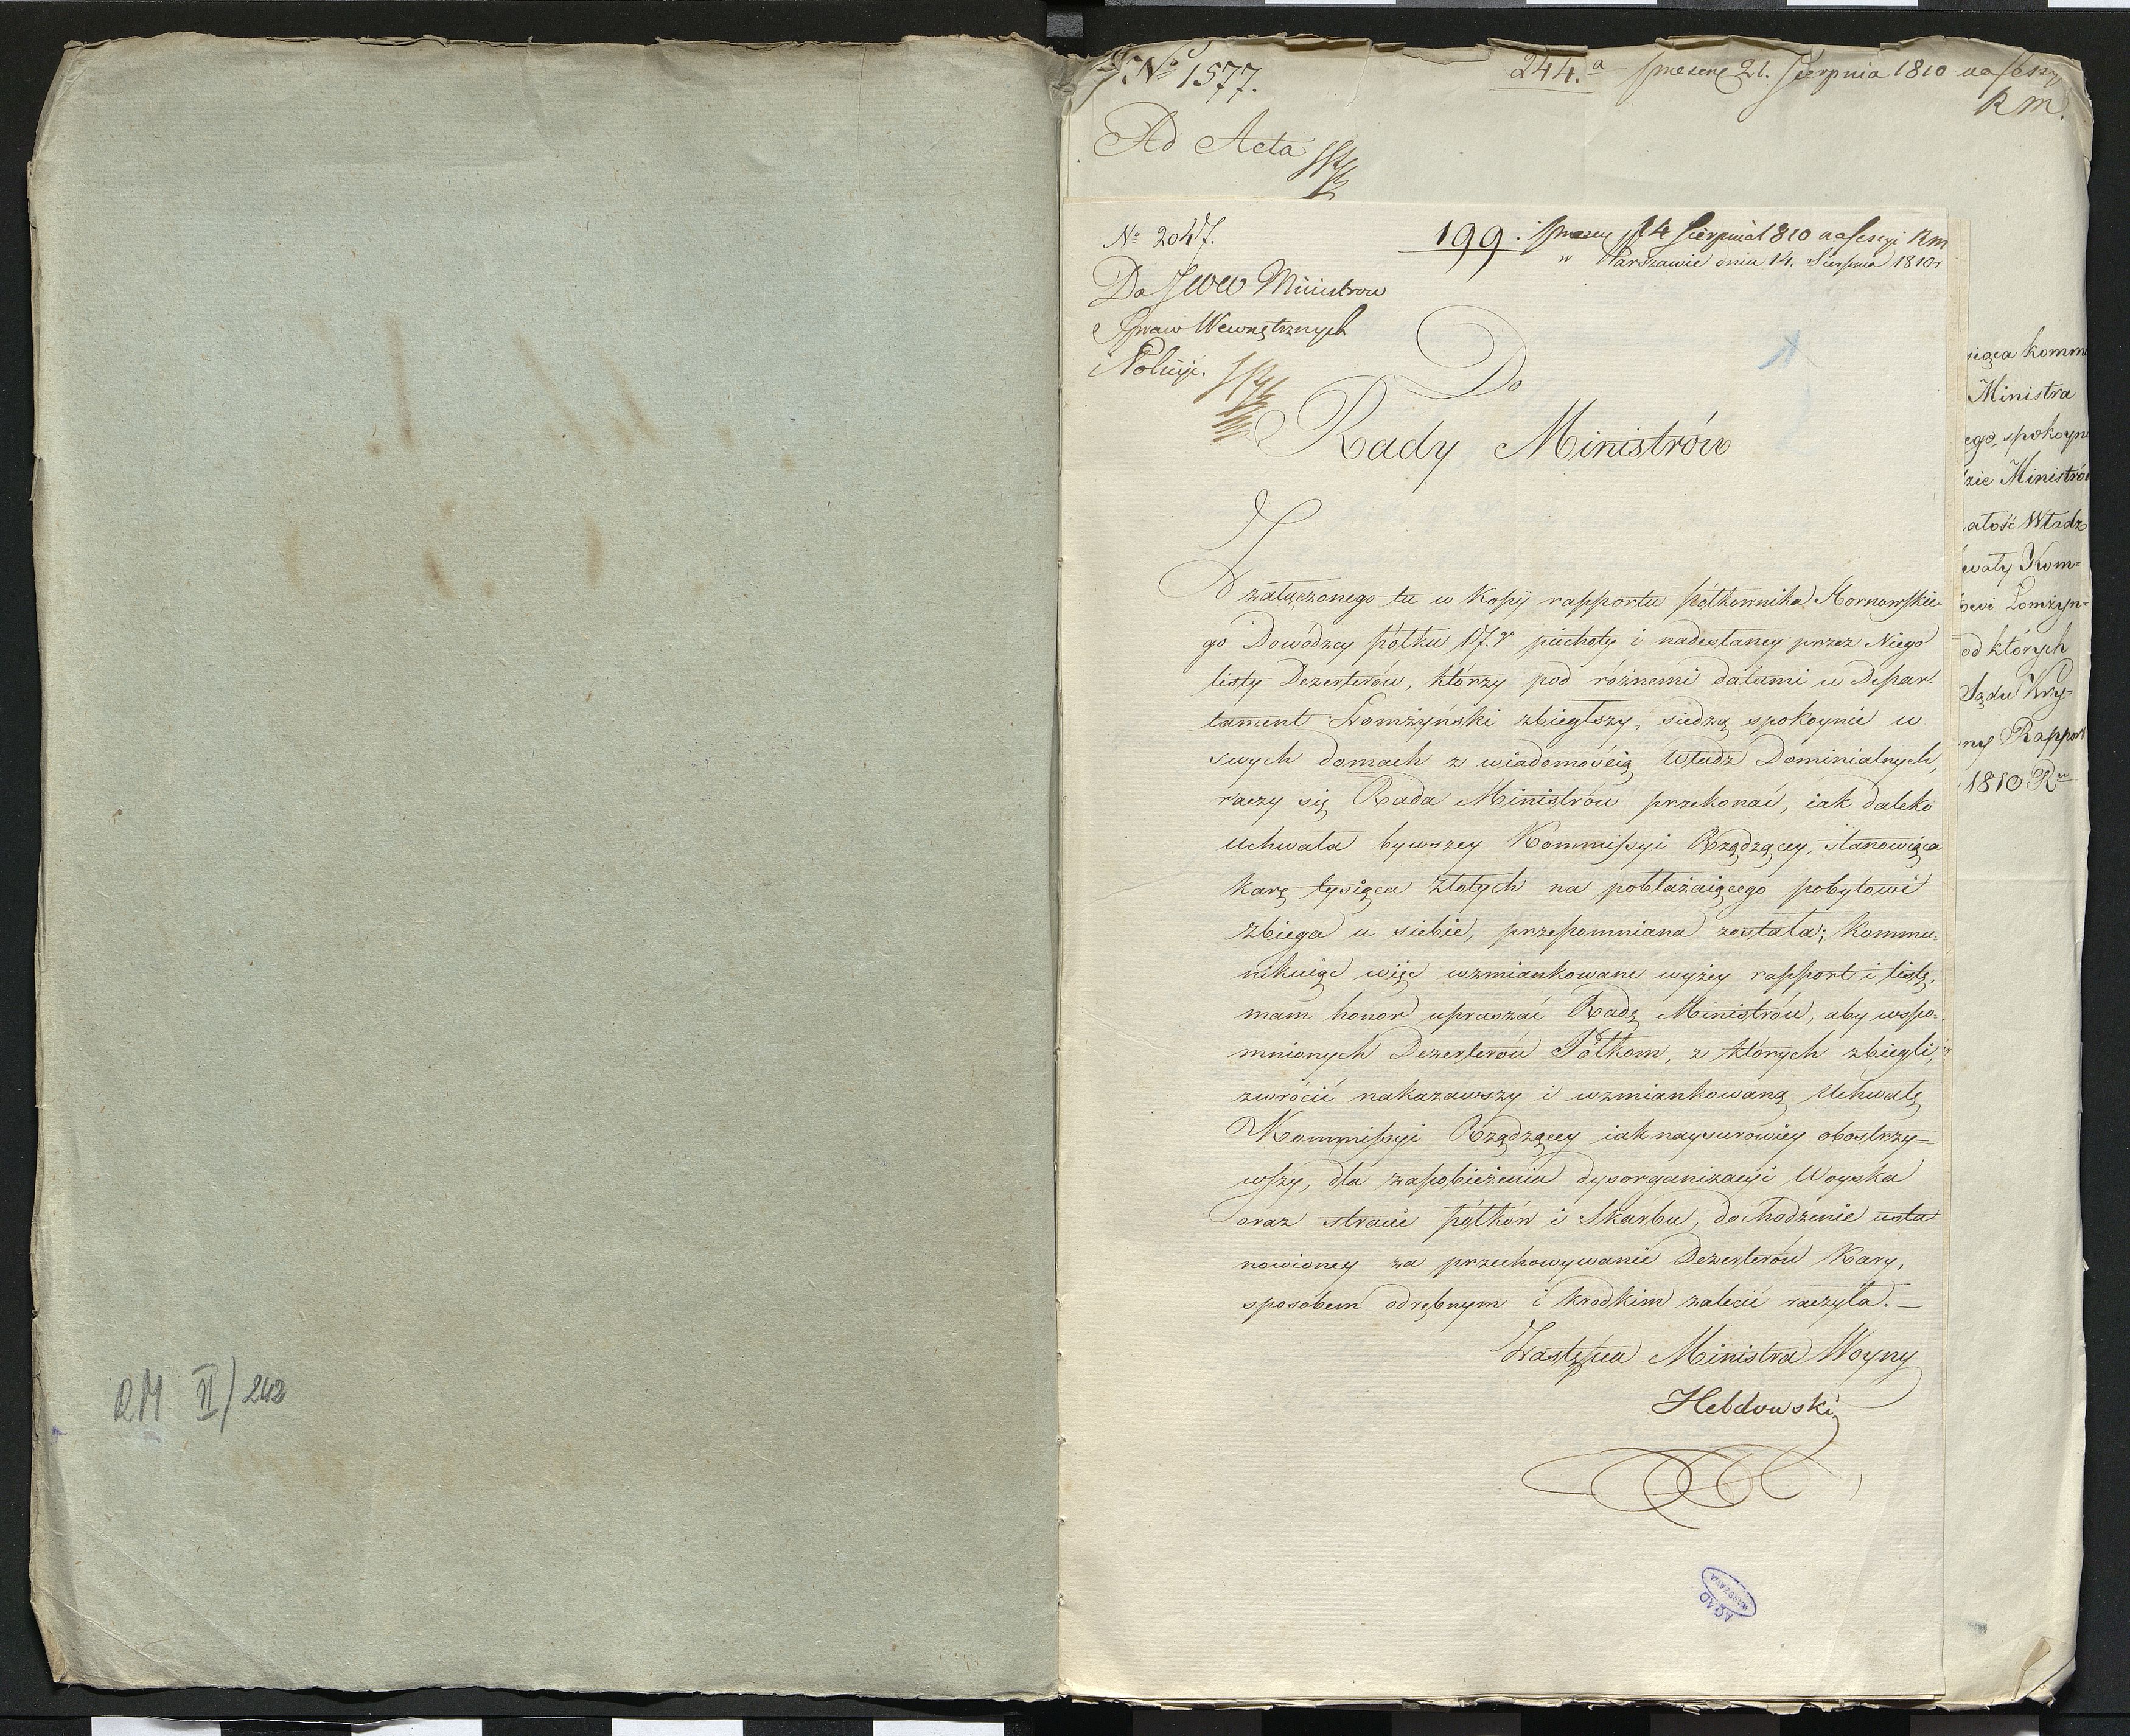 RM II/242
No 1577.
244.a praesent 21. Sierpnia 1810 na sessyi
RM.
Ad Acta
No 2047.
199. 14 Sierpnia 1810 na sessyi RM
w Warszawie dnia 14. Sierpnia 1810 r
Do JWW Ministrow
Spraw Wewnętrznych
i Policyi.
Do
Rady Ministrów
Z załączonego tu w Kopij rapportu półkownika Hornowskie-
go Dowódzcy półku 17.go piechoty i nadesłaney przez Niego
listy Dezerterów, którzy pod różnemi datami w Depar-
tament Łomżyński zbiegłszy, siedzą spokoynie w
swych domach z wiadomością Władz Dominialnych,
raczy się Rada Ministrów przekonać, iak daleko
Uchwała bywszey Kommissyi Rządzącey, stanowiąca
karę tysiąca złotych na pobłażaiącego pobytowi
zbiega u siebie, przepomniana została; Kommu-
nikuiąc więc wzmiankowane wyżey rapport i listę,
mam honor upraszać Radę Ministrów, aby wspo-
mnionych Dezerterów Półkom, z których zbiegli,
zwrócić nakazawszy i wzmiankowaną Uchwałę
Kommissyi Rządzącey iak naysurowiey obostrzy-
wszy, dla zapobieżenia dysorganizacyi Woyska
oraz stracie półków i Skarbu, dochodzenie usta-
nowioney za przechowywanie Dezerterów Kary,
sposobem odrębnym i krodkim zalecić raczyła. —
Zastępca Ministra Woyny
Hebdowski
AGAD
WARSZAWA
siąca komm
Ministra
ego, spokoyn
zie Ministró
ałość Władz
wały Kom-
owi Łomżyń-
od których
Sądu Kry-
ny Rapport
1810 R